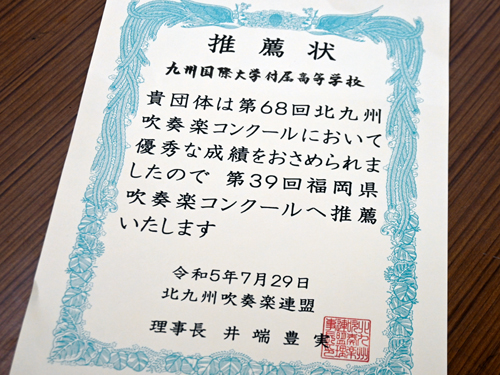 推薦状
九州国際大学付属高等学校
貴団体は第68回北九州
吹奏楽コンクールにおいて
優秀な成績をおさめられま
したので 第39回福岡県
吹奏楽コンクールへ推薦
いたします
令和5年7月29日
北九州吹奏楽連盟
理事長 井端豊実